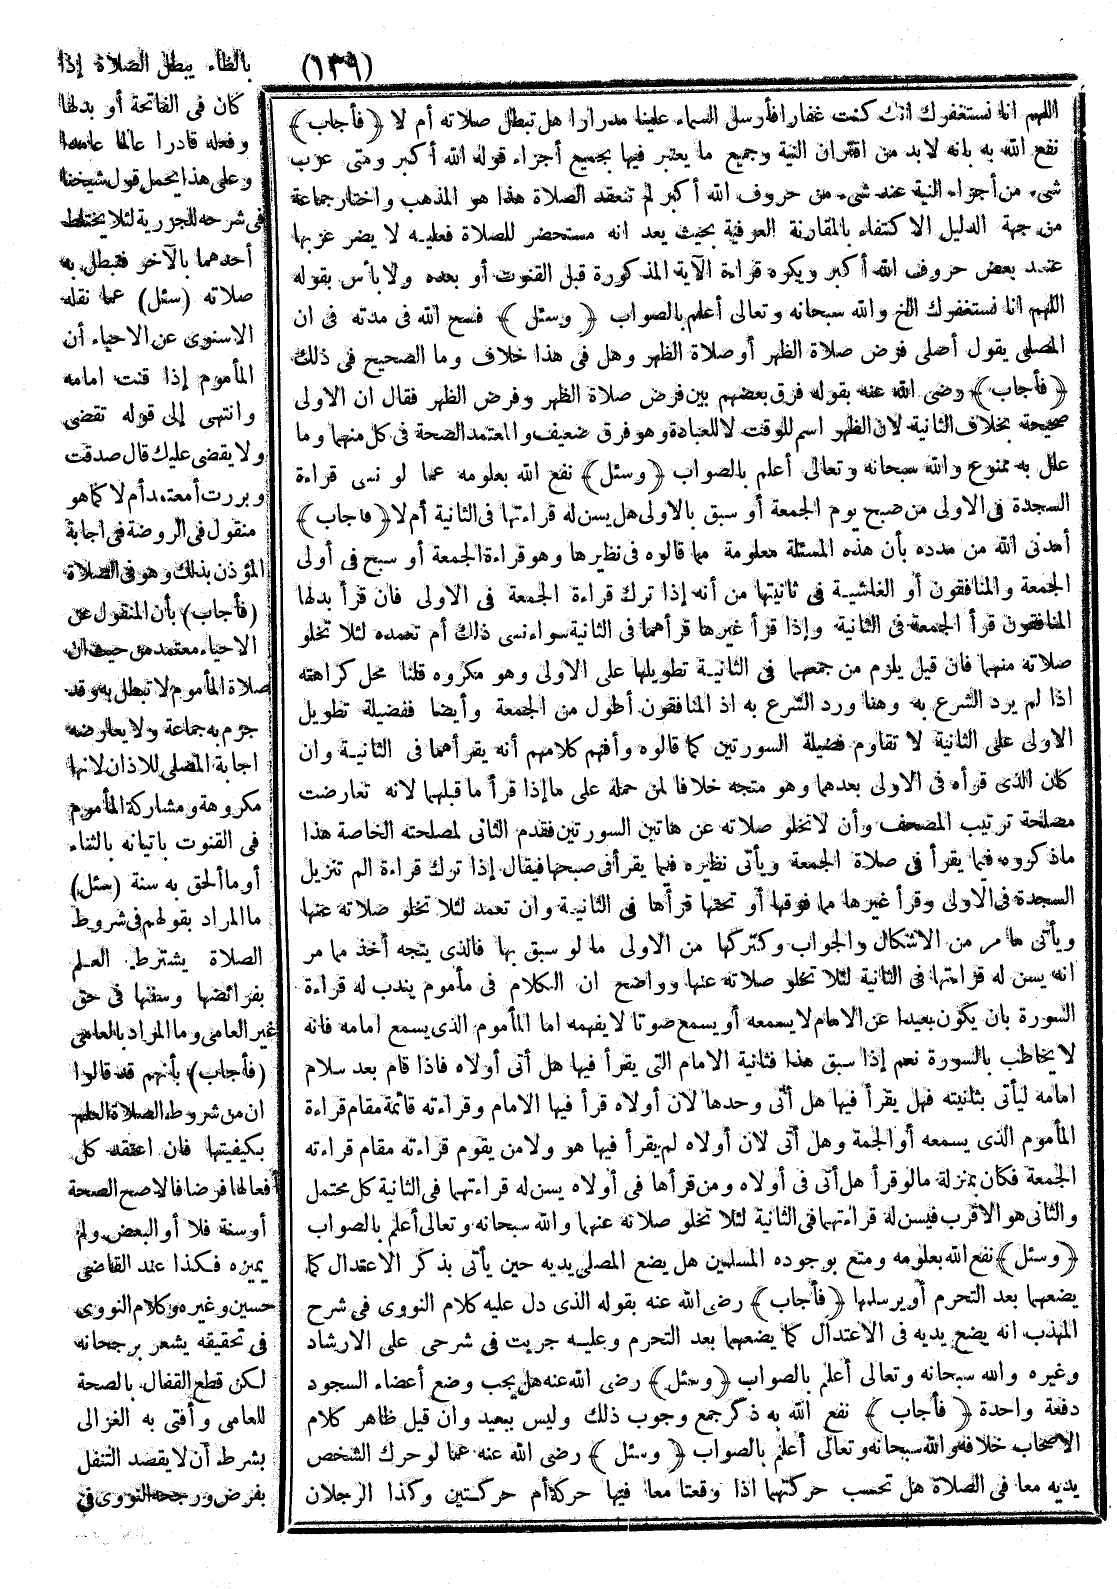 (١٣٩)
اللهم انا نستغفرك انك كنت غفارا فأرسل السماء علينا مدرارا هل تبطل صلاته أم لا (فأجاب)
نفع الله به بانه لا بد من اقتران النية وجميع ما يعتبر فيها بجميع أجزاء قوله الله أكبر ومتى عزب
شىء من أجزاء النية عند شىء من حروف الله أكبر لم تنعقد الصلاة هذا هو المذهب واختار جماعة
من جهة الدليل الاكتفاء بالمقارنة العرفية بحيث يعد انه مستحضر للصلاة فعليه لا يضر عزبها
عند بعض حروف الله أكبر ويكره قراءة الآية المذكورة قبل القنوت أو بعده ولا بأس بقوله
اللهم انا نستغفرك الخ والله سبحانه وتعالى أعلم بالصواب (وسئل) فسح الله فى مدته فى ان
المصلى يقول أصلى فرض صلاة الظهر أو صلاة الظهر وهل فى هذا خلاف وما الصحيح فى ذلك
(فأجاب) رضى الله عنه بقوله فرق بعضهم بين فرض صلاة الظهر وفرض الظهر فقال ان الاولى
صحيحة بخلاف الثانية لان الظهر اسم للوقت لا للعبادة وهو فرق ضعيف والمعتمد الصحة فى كل منهما وما
علل به ممنوع والله سبحانه وتعالى أعلم بالصواب (وسئل) نفع الله بعلومه عما لو نسى قراءة
السجدة فى الاولى من صبح يوم الجمعة أو سبق بالاولى هل يسن له قراءتها فى الثانية أم لا (فأجاب)
أمدنى الله من مدده بأن هذه المسئلة معلومة مما قالوه فى نظيرها وهو قراءة الجمعة أو سبح فى أولى
الجمعة والمنافقون أو الغاشية فى ثانيتها من أنه إذا ترك قراءة الجمعة فى الاولى فان قرأ بدلها
المنافقون قرأ الجمعة فى الثانية وإذا قرأ غيرها قرأهما فى الثانية سواء نسى ذلك أم تعمده لئلا تخلو
صلاته منهما فان قيل يلزم من جمعهما فى الثانية تطويلها على الاولى وهو مكروه قلنا محل كراهته
اذا لم يرد الشرع به وهنا ورد الشرع به اذ المنافقون أطول من الجمعة وأيضا ففضيلة تطويل
الاولى على الثانية لا تقاوم فضيلة السورتين كما قالوه وأفهم كلامهم أنه يقرأهما فى الثانية وان
كان الذى قرأه فى الاولى بعدهما وهو متجه خلافا لمن حمله على ما إذا قرأ ما قبلهما لانه تعارضت
مصلحة ترتيب المصحف وأن لا تخلو صلاته عن هاتين السورتين فقدم الثانى لمصلحته الخاصة هذا
ما ذكروه فيما يقرأ فى صلاة الجمعة ويأتى نظيره فيما يقرأ فى صبحها فيقال إذا ترك قراءة الم تنزيل
السجدة فى الاولى وقرأ غيرها مما فوقها أو تحتها قرأها فى الثانية وان تعمد لئلا تخلو صلاته عنها
ويأتى ما مر من الاشكال والجواب وكتركها من الاولى ما لو سبق بها فالذى يتجه أخذ مما مر
انه يسن له قراءتها فى الثانية لئلا تخلو صلاته عنها وواضح ان الكلام فى مأموم يندب له قراءة
السورة بان يكون بعيدا عن الامام لا يسمعه أو يسمع صوتا لا يفهمه اما المأموم الذى يسمع امامه فانه
لا يخاطب بالسورة نعم إذا سبق هذا فثانية الامام التى يقرأ فيها هل أتى أولاه فاذا قام بعد سلام
امامه ليأتى بثانيته فهل يقرأ فيها هل أتى وحدها لان أولاه قرأ فيها الامام وقراءته قائمة مقام قراءة
المأموم الذى يسمعه أو الجمة وهل أتى لان أولاه لم يقرأ فيها هو ولا من يقوم قراءته مقام قراءته
الجمعة فكان بمنزلة ما لو قرأ هل أتى فى أولاه ومن قرأها فى أولاه يسن له قراءتهما فى الثانية كل محتمل
والثانى هو الاقرب فيسن له قراءتهما فى الثانية لئلا تخلو صلاته عنهما والله سبحانه وتعالى أعلم بالصواب
(وسئل) نفع الله بعلومه ومتع بوجوده المسلمين هل يضع المصلى يديه حين يأتى بذكر الاعتدال كما
يضعهما بعد التحرم أو يرسلهما (فأجاب) رضى الله عنه بقوله الذى دل عليه كلام النووى فى شرح
المهذب انه يضع يديه فى الاعتدال كما يضعهما بعد التحرم وعليه جريت فى شرحى على الارشاد
وغيره والله سبحانه وتعالى أعلم بالصواب (وسئل) رضى الله عنه هل يجب وضع أعضاء السجود
دفعة واحدة (فأجاب) نفع الله به ذكر جمع وجوب ذلك وليس ببعيد وان قيل ظاهر كلام
الاصحاب خلافه والله سبحانه وتعالى أعلم بالصواب (وسئل) رضى الله عنه عما لو حرك الشخص
يديه معا فى الصلاة هل تحسب حركتهما اذا وقعتا معا فيها حركة أم حركتين وكذا الرجلان
بالظاء يبطل الصلاة إذا
كان فى الفاتحة أو بدلها
وفعله قادرا عالما عامدا
وعلى هذا يحمل قول شيخنا
فى شرحه للجزرية لئلا يختلط
أحدهما بالآخر فتبطل به
صلاته (سئل) عما نقله
الاسنوى عن الاحياء أن
المأموم إذا قنت امامه
وانتهى إلى قوله تقضى
ولا يقضى عليك قال صدقت
وبررت أمعتمد أم لا كما هو
منقول فى الروضة فى اجابة
المؤذن بذلك وهو فى الصلاة
(فأجاب) بأن المنقول عن
الاحياء معتمد من حيث ان
صلاة المأموم لا تبطل به وقد
جزم به جماعة ولا يعارضه
اجابة المصلى للاذان لانها
مكروهة ومشاركة المأموم
فى القنوت باتيانه بالثناء
أو ما ألحق به سنة (سئل)
ما المراد بقولهم فى شروط
الصلاة يشترط العلم
بفرائضها وسننها فى حق
غير العامى وما المراد بالعامى
(فأجاب) بأنهم قد قالوا
ان من شروط الصلاة العلم
بكيفيتها فان اعتقد كل
أفعالها فرضا فالاصح الصحة
أو سنة فلا أو البعض ولم
يميزه فكذا عند القاضى
حسين وغيره وكلام النووى
فى تحقيقه يشعر برجحانه
لكن قطع القفال بالصحة
للعامى وأفتى به الغزالى
بشرط أن لا يقصد التنفل
بفرض ورجحه النووى فى